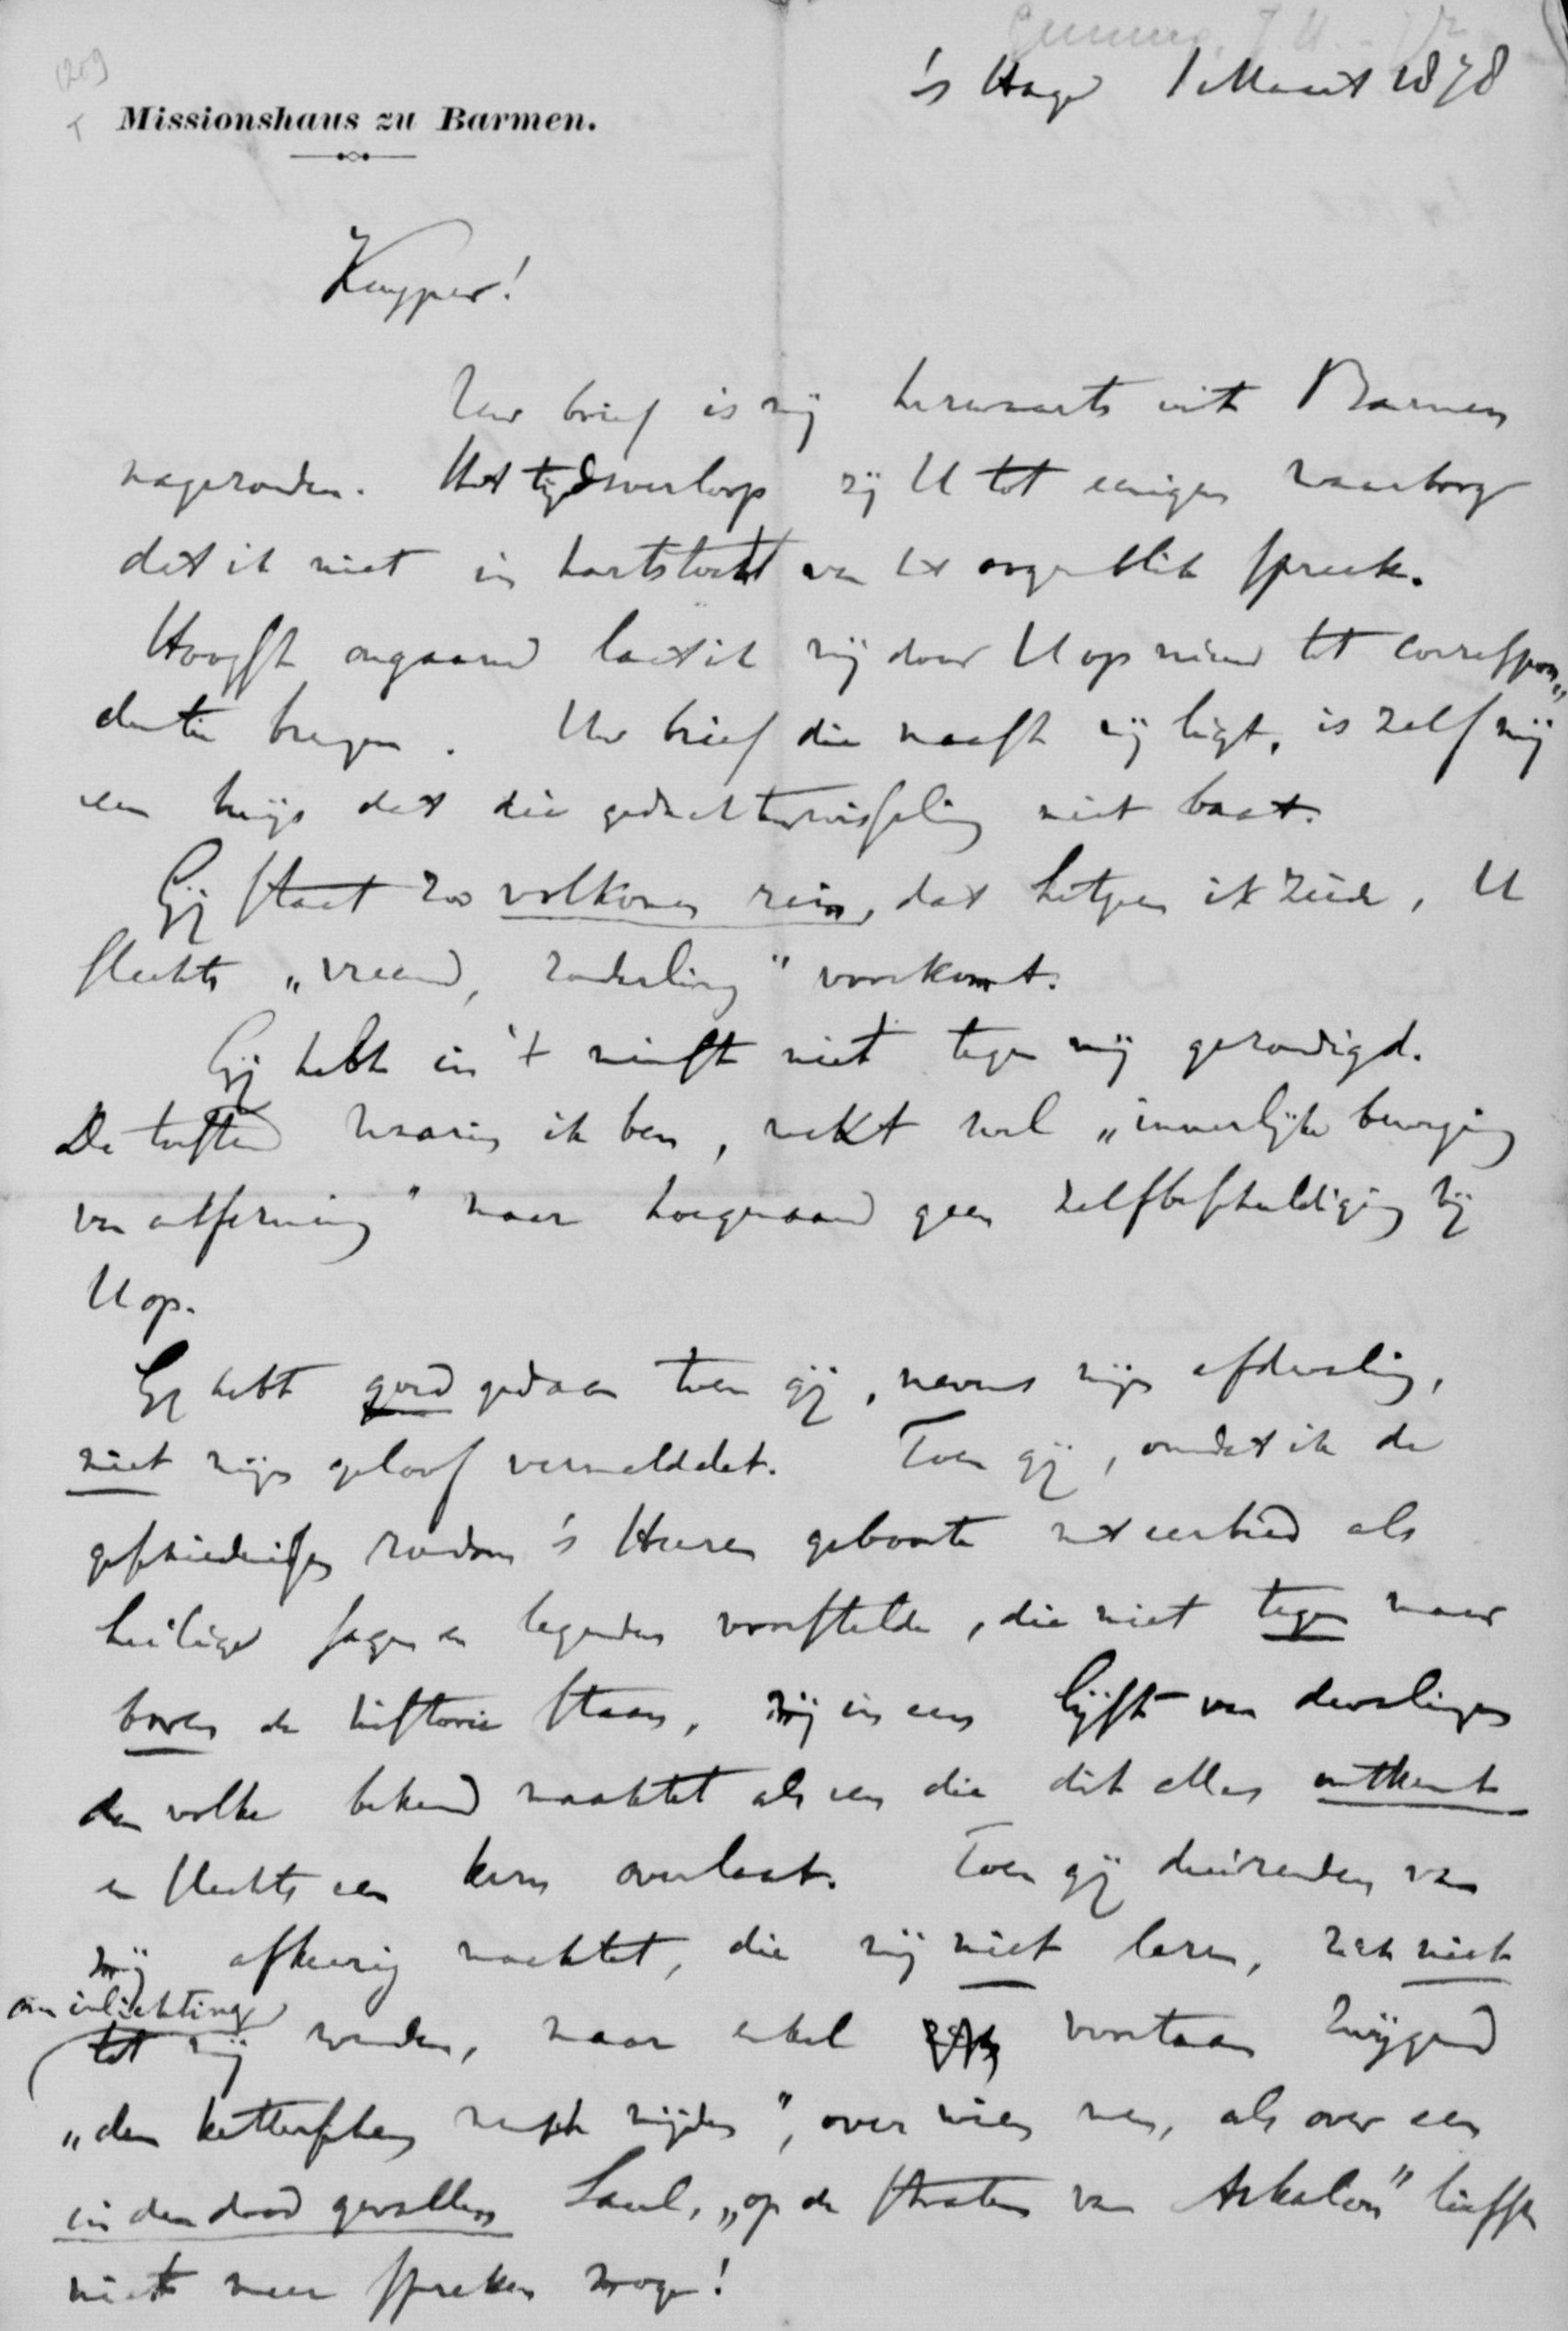 Gunning, J.H. Jr
(209)
's Hage 1 Maart 1878
Missionshaus zu Barmen.
Kuyper!
Uw brief is mij herwaarts uit Barmen
nagezonden. Het tijdsverloop zij U tot eenigen waarborg
dat ik niet in hartstocht van het oogenblik spreek.
Hoogst ongaarne laat ik mij door U op nieuw tot correspon„
dentie brengen. Uw brief die naast mij ligt, is zelf mij
een bewijs dat die gedachtenwisseling niet baat.
Gij staat zoo volkomen rein, dat hetgeen ik zeide, U
slechts „vreemd, zonderling" voorkomt.
Gij hebt in 't minst niet tegen mij gezondigd.
De toestand waarin ik ben, wekt wel „innerlijke beweging
van ontferming" maar hoegenaamd geen zelfbeschuldiging bij
U op.
Gij hebt goed gedaan toen gij, nevens mijn afdwaling,
niet mijn geloof vermelddet. Toen gij, omdat ik de
geschiedenissen rondom 's Heeren geboorte met eerbied als
heilige sagen en legenden voorstelde, die niet tegen maar
boven de historie staan, mij in een lijst van dwalingen
den volke bekend maaktet als een die dit alles ontkent
en slechts een kern overlaat. Toen gij duizenden van
mij afkeerig maaktet, die mij niet lezen, zich niet
om inlichting
tot mij wenden, maar enkel voortaan zwijgend
„den ketterschen mensch mijden", over wien men, als over een
in den dood gevallen Saul, „op de straten van Askalon" liefst
niet meer spreken moge!